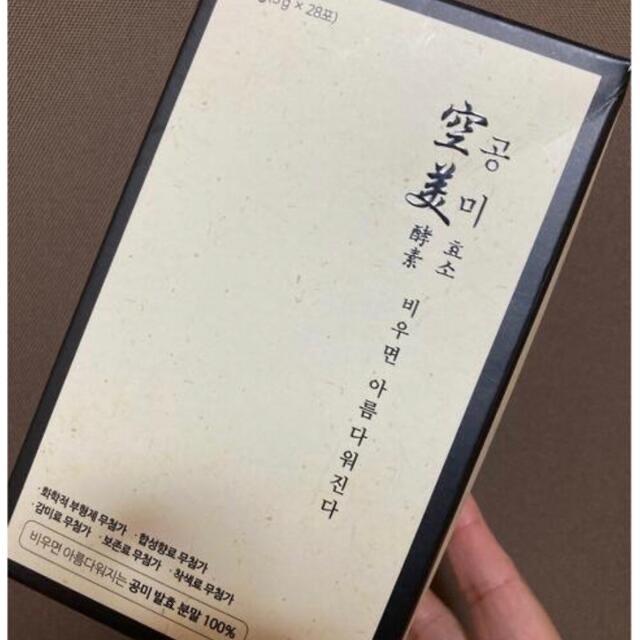 (5g × 28포)
空美 공미
酵素 효소
비우면 아름다워진다
·화학적 부형제 무첨가 ·합성향료 무첨가
·감미료 무첨가 ·보존료 무첨가 ·착색료 무첨가
비우면 아름다워지는 공미 발효 분말 100%